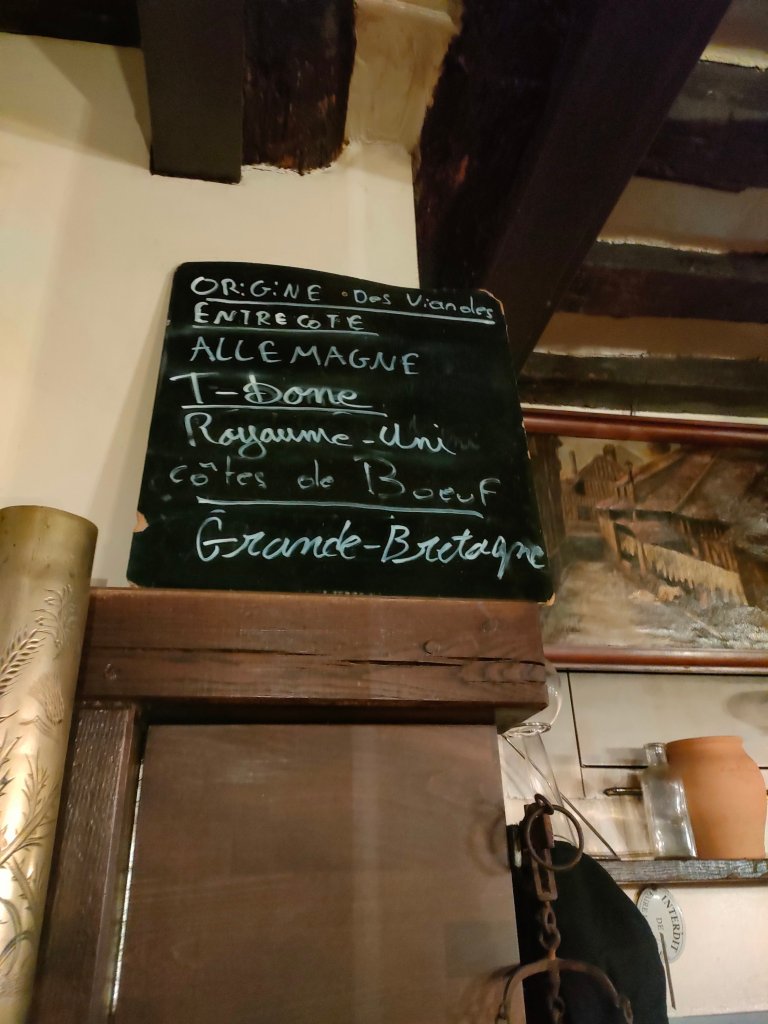 ORiGiNE . Des Viandes
ENTRECOTE
ALLEMAGNE
T-Bone
Royaume-Uni
côtes de Boeuf
Grande-Bretagne
INTERDIT
DE